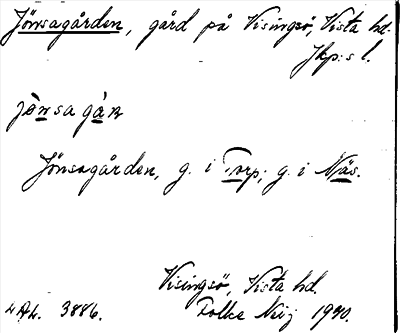 Jönsagården, gård på Visingsö, Vista hd.
Jkp:s l.
jònsagàn
Jönsagården, g. i Torp; g. i Näs.
Visingsö, Vista hd.
3886. Folke 1940.